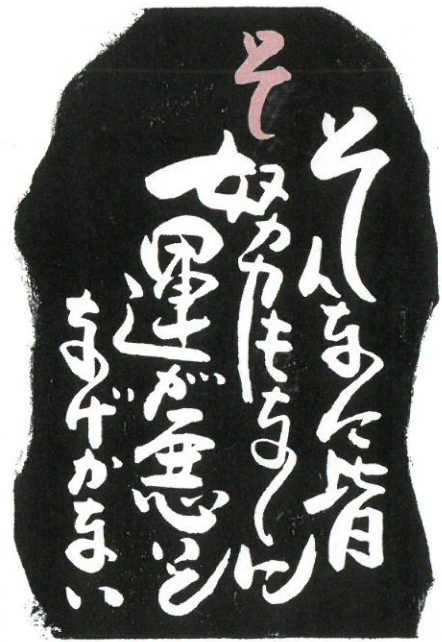 そ
そんなに皆
努力もなしに
運が悪いと
なげかない